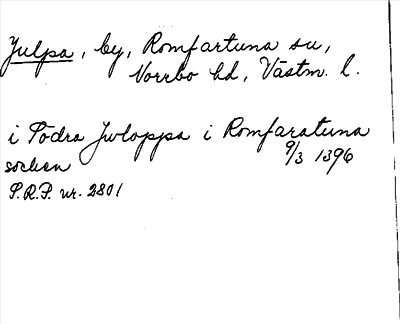 Julpa, by, Romfartuna sn,
Norrbo hd, Västm. l.
i Södra Juloppa i Romfaratuna
socken 9/3 1396
S.R.P. nr. 2801